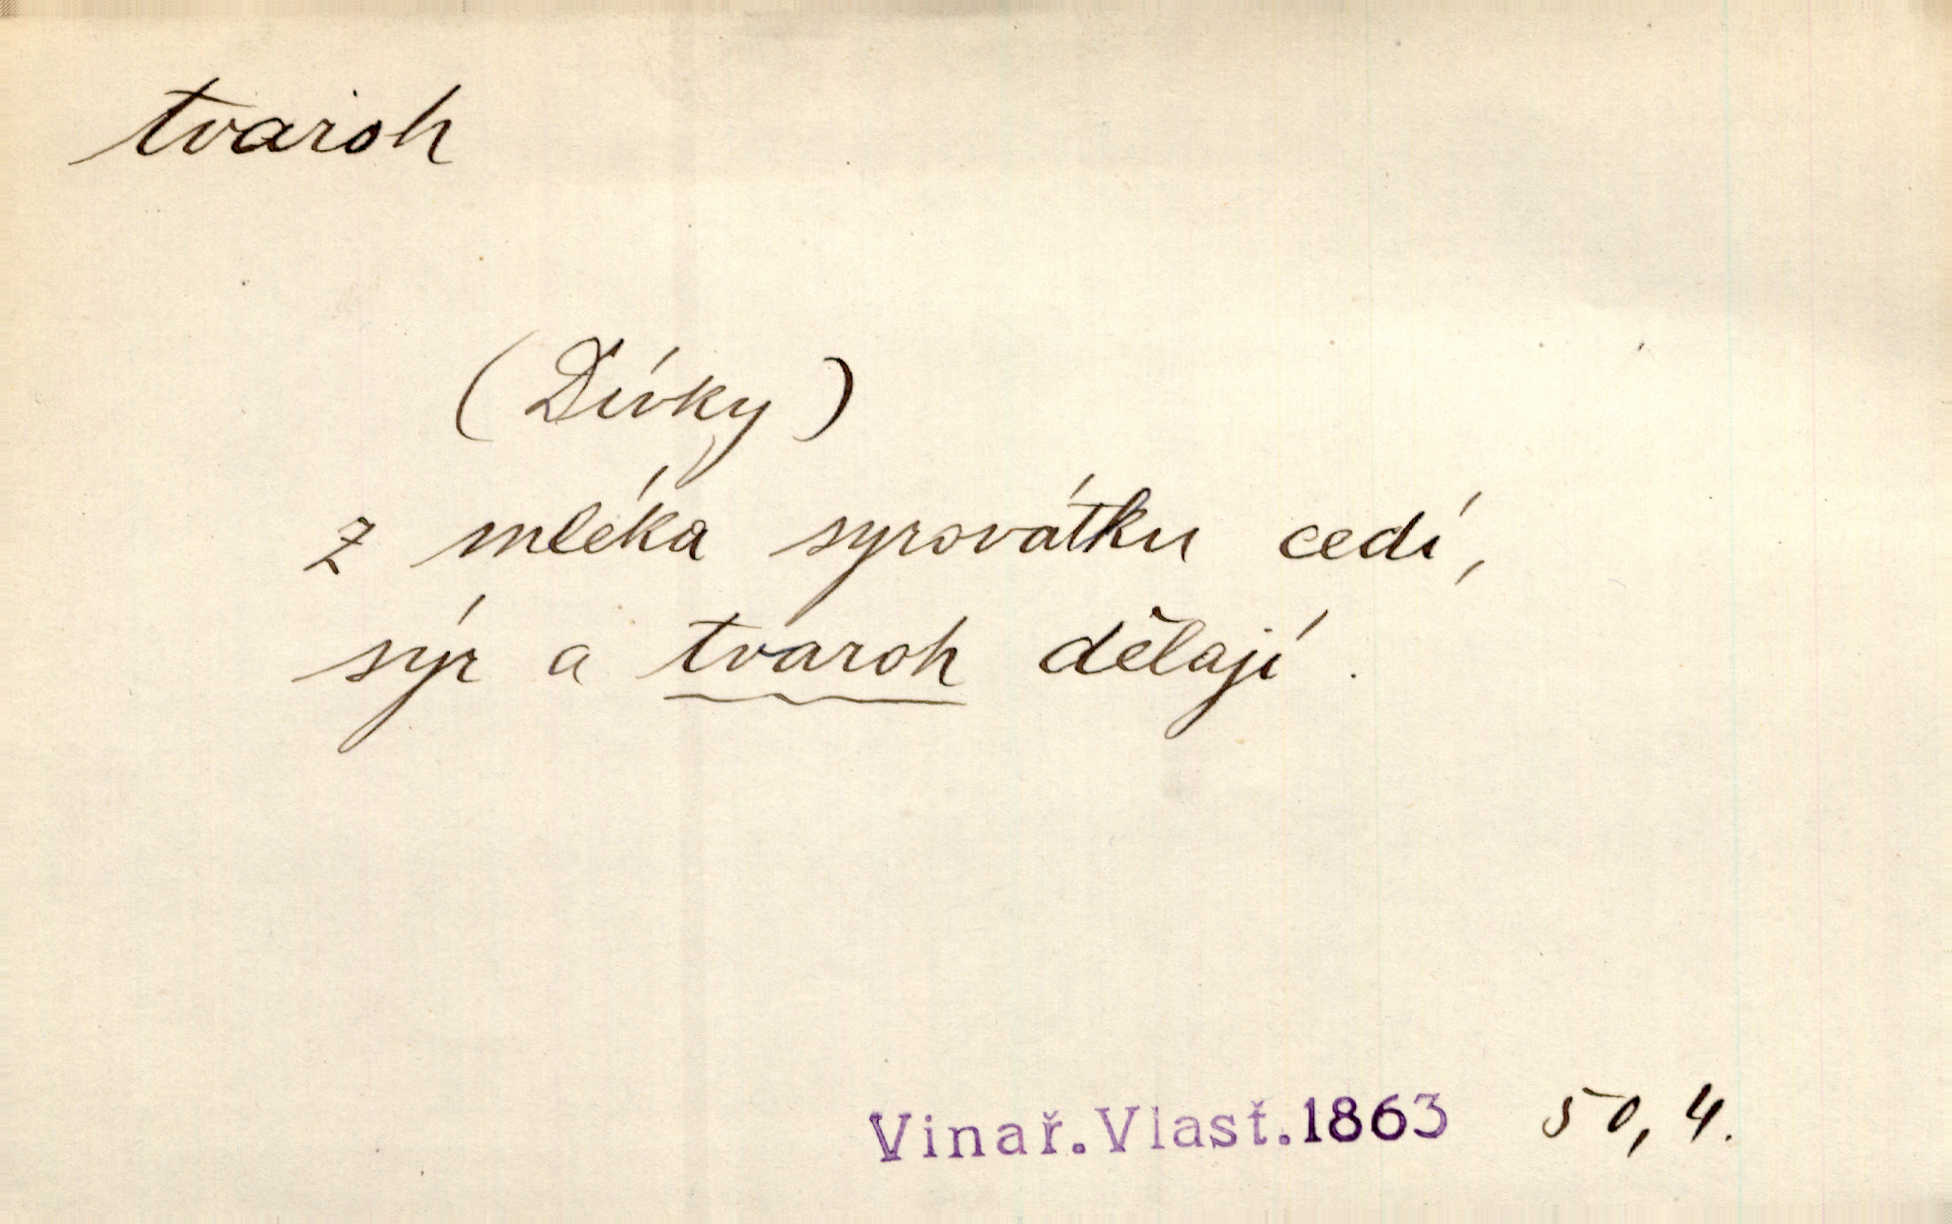 tvaroh
(Dívky)
z mléka syrovátku cedí,
sýr a tvaroh dělají.
Vinař.Vlasť.1863 50,4.